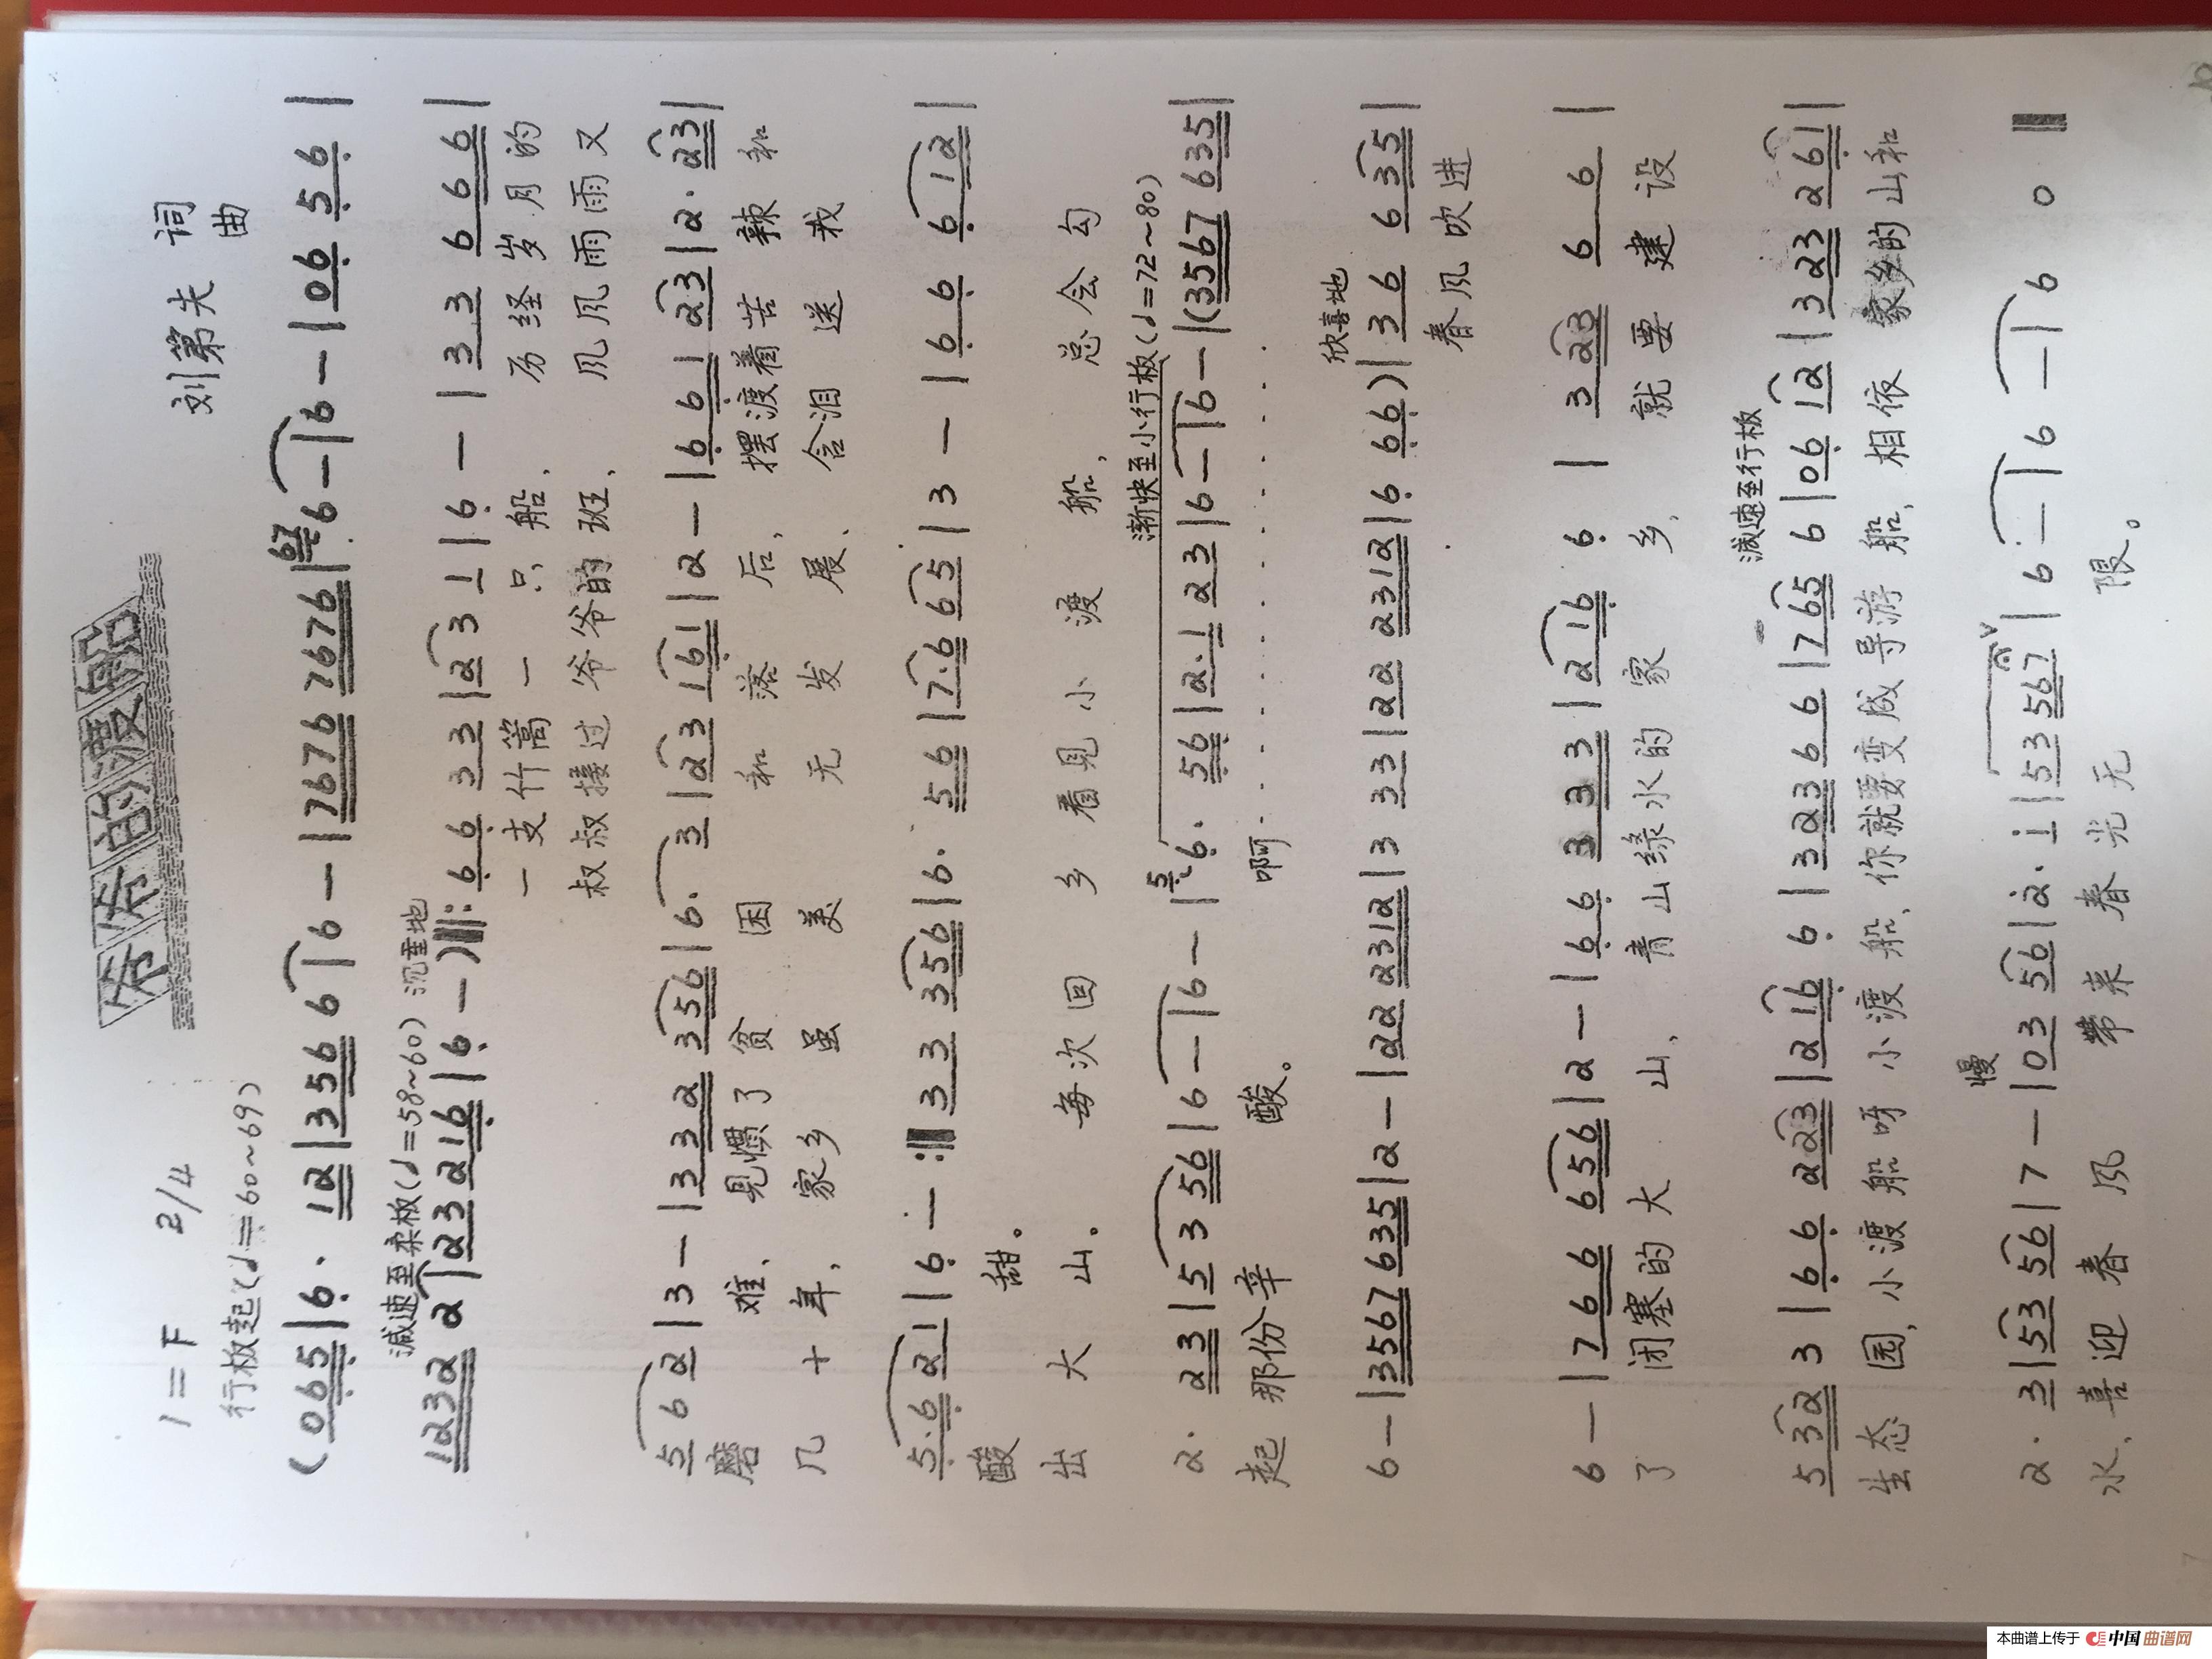 爷爷的渡船
1=F 2/4 刘第失 词
曲
行板起(♩=60~69)
(0 6 5 | 6· 1 2 | 3 5 6 6 | 6 — | 7 6 7 6 7 6 7 6 | 6 7 6 — | 6 — | 0 6 5 6 |
减速至柔板(♩=58~60) 沉重地
1 2 3 2 2 | 2 3 2 1 6 | 6 —) ‖: 6 6 3 3 | 2 3 1 | 6 — | 3 3 6 6 6 |
一支竹篙一只船、历经岁月的
叔叔接过爷爷的班、风风雨雨又
5 6 2 | 3 — | 3 3 2 3 5 6 | 6· 3 | 2 3 1 6 1 | 2 — | 6 6 1 2 3 | 2· 2 3 |
磨难、见惯了贫困和落后,摆渡着苦辣和
几十年,家乡虽美无发展、含泪送我
5·6 2 1 | 6 — :‖ 3 3 3 5 6 | 6· 5 6 | 7·6 6 5 | 3 — | 6 6 6 1 2 |
酸甜。
出大山。每次回乡看见小渡船,总会勾
渐快至小行板(♩=72~80)
2· 2 3 | 5 3 5 6 | 6 — | 6 — | 5 6· 5 6 | 2·1 2 3 | 6 — | 6 — | (3 5 6 7 6 3 5 |
起那份辛酸。啊············
欣喜地
6 — | 3 5 6 7 6 3 5 | 2 — | 2 2 2 3 1 2 | 3 3 3 | 2 2 2 3 1 2 | 6 6 6) | 3 6 6 3 5 |
春风吹进
6 — | 7 6 6 6 5 6 | 2 — | 6 6 3 3 3 | 2 1 6 6 | 3 2 3 6 6 |
了闭塞的大山、青山绿水的家乡,就要建设
减速至行板
5 3 2 3 | 6 6 2 2 3 | 2 1 6 6 | 3 2 3 6 6 | 7 6 5 6 | 0 6 1 2 | 3 2 3 2 6 1 |
生态园,小渡船呀小渡船、你就要变成导游船,相依家乡的山和
慢
2· 3 | 5 3 5 6 | 7 — | 0 3 5 6 | 2· 1 | 5 3 5 6 7 | 6 — | 6 — | 6 0 ‖
水、喜迎春风带来春光无限。
本曲谱上传于 中国曲谱网